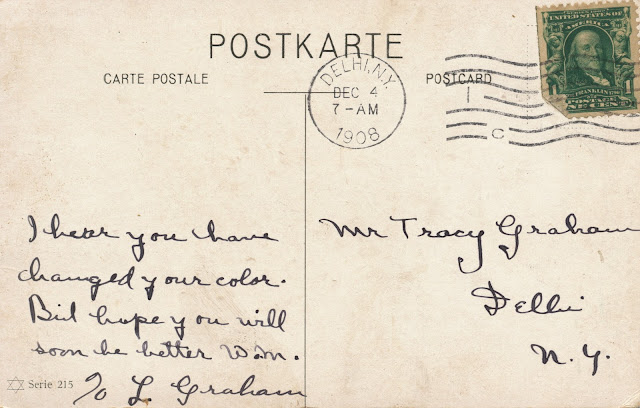 POSTKARTE
CARTE POSTALE
POSTCARD
DELHI, N.Y.
DEC 4
7-AM
1908
C
UNITED STATES OF
AMERICA
FRANKLIN
1 1
POSTAGE
ONE CENT
I hear you have
changed your color.
But hope you will
soon be better W.M.
c/o L Graham
Mr Tracy Graham
Delhi
N.Y.
Serie 215